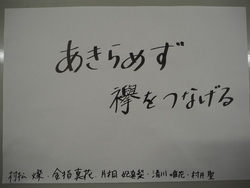 あきらめず
襷をつなげる
村松 燦・金指真花・片桐 妃菜梨・清川 唯花・村井 聖